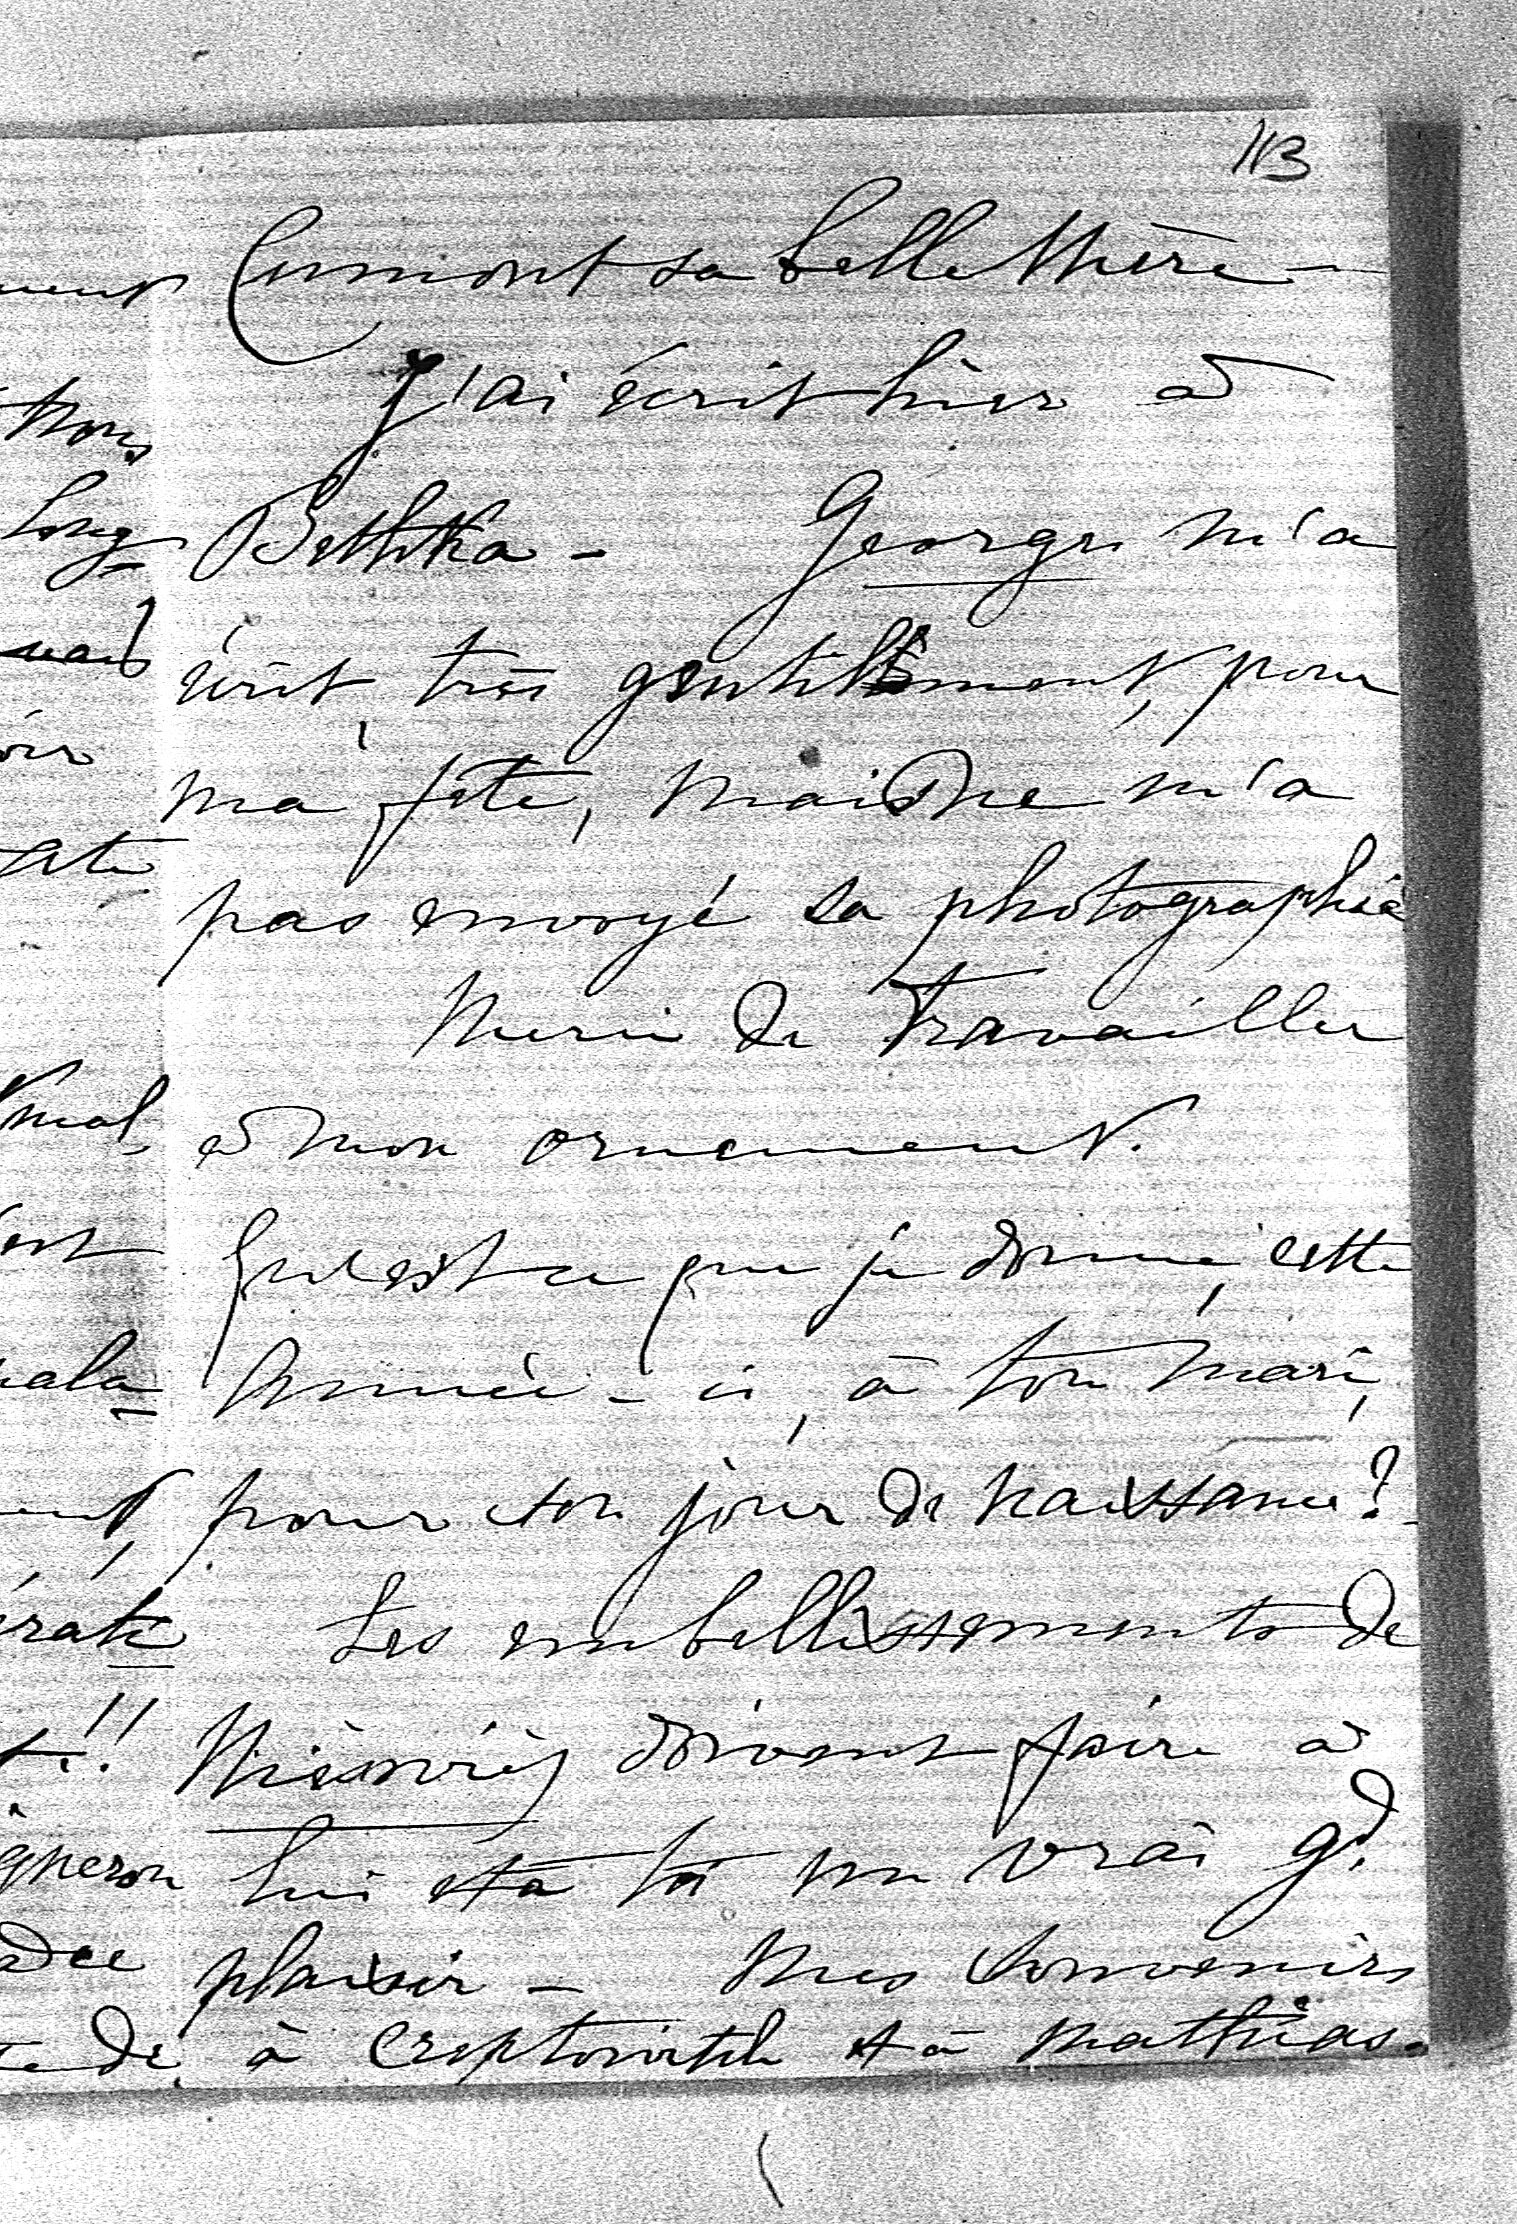 113
Cumont sa belle Mère —
J'ai écrit hier à
Bethka - Georges m'a
écrit, très gentillement, pour
ma fête, mais ne m'a
pas envoyé sa photographie
Merci de travailler
à mon ornement.
Qu'est ce que je donne, cette
Année-ci, à ton mari,
pour son jour de naissance?
Les embellissements de
doivent faire à
lui et à toi un vrai gd
plaisir - Mes Souvenirs
à et à Mathias.